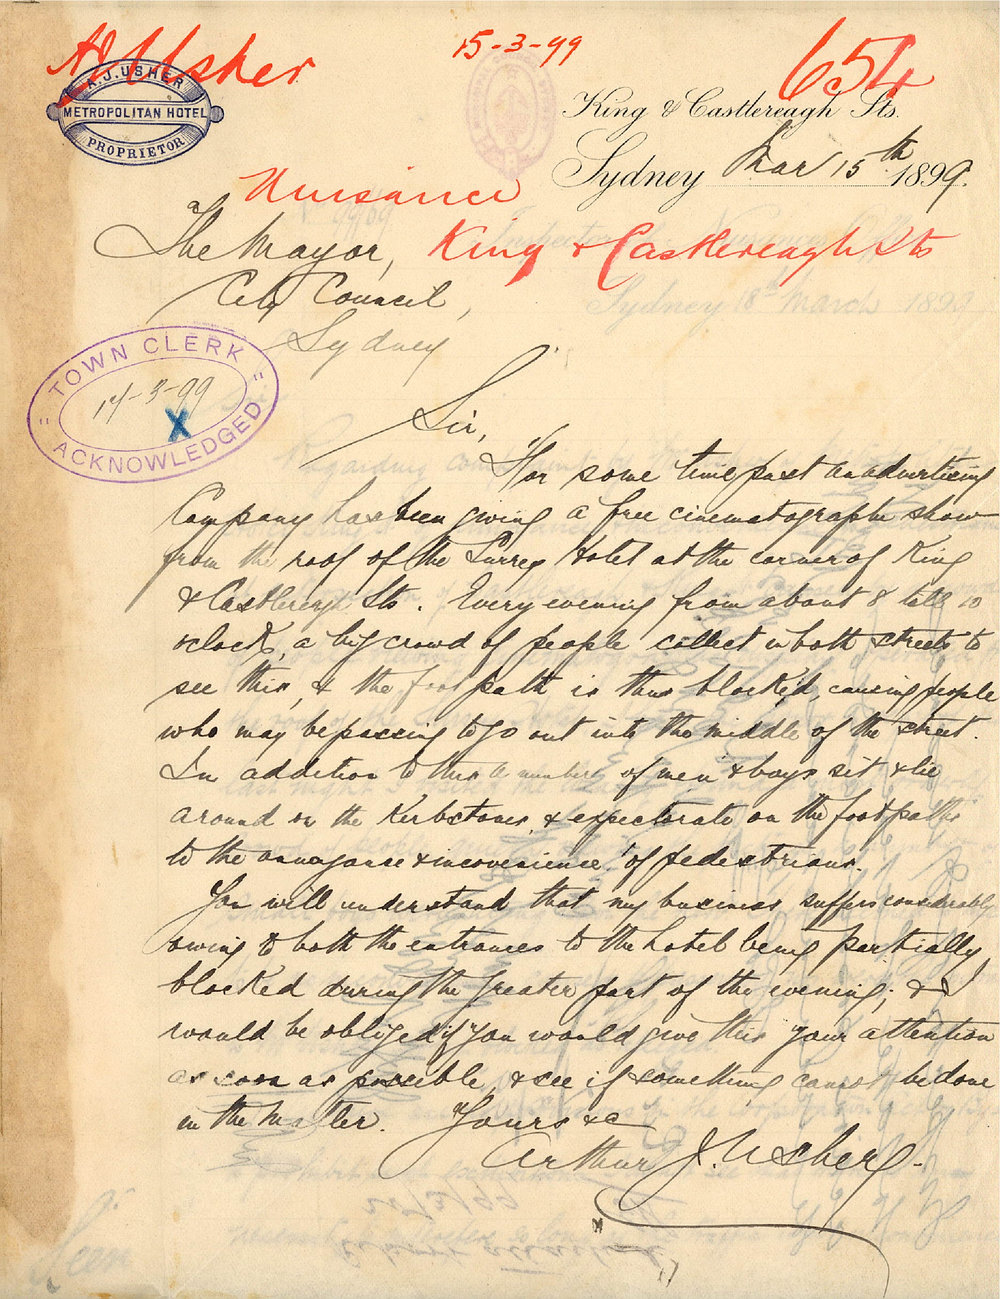 A J Usher
15-3-99
654
A. J. USHER
METROPOLITAN HOTEL
PROPRIETOR
King & Castlereagh Sts.
Sydney Mar 15th 1899.
Nuisance
King & Castlereagh Sts
The Mayor,
City Council,
Sydney
TOWN CLERK
17-3-99
X
ACKNOWLEDGED
Sir,
For some time past an advertising
Company has been giving a free cinematographe show
from the roof of the Surrey Hotel at the corner of King
& Castlereagh Sts. Every evening from about 8 till 10
o'clock, a big crowd of people collect in both streets to
see this, & the footpath is thus blocked, causing people
who may be passing to go out into the middle of the street.
In addition to this a number of men & boys sit & lie
around on the Kerbstones, & expectorate on the footpaths
to the annoyance & inconvenience of pedestrians.
You will understand that my business suffers considerably
owing to both the entrances to the hotel being partially
blocked during the greater part of the evening; & I
would be obliged if you would give this your attention
as soon as possible, & see if something cannot be done
in the matter. Yours &c
Arthur J. Usher.